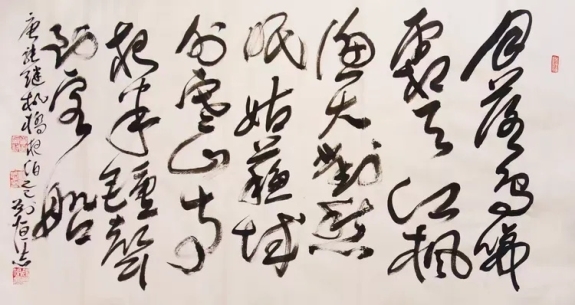 月落烏啼
霜天江楓
漁火對愁
眠姑蘇城
外寒山寺
夜半鐘聲
到客船
唐張繼楓橋夜泊